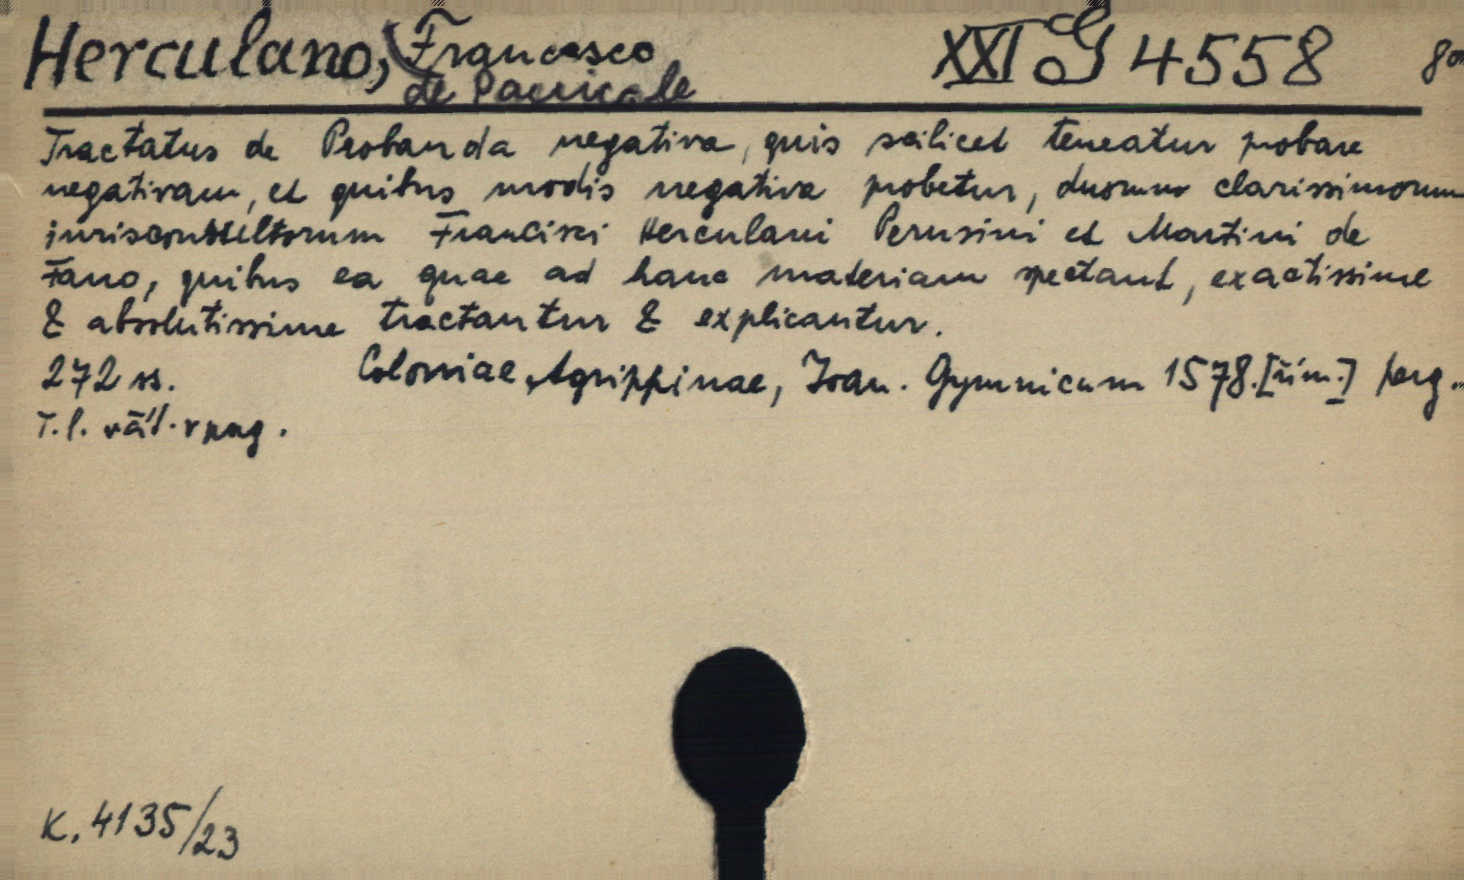 Herculano, Francesco XXI G 4558 80
de Paccicale
Tractatus de Probanda negativa, quis scilicet teneatur probare
negativam, et quibus modis negativa probetur, duorum clarissimorum
jurisconsultorum Francisci Herculani Perusini et Martini de
Fano, quibus ea quae ad hanc materiam spectant, exactissime
& absolutissime tractantur & explicantur.
272 ss. Coloniae Agrippinae, Ioan. Gymnicum 1578.[řím.] perg.
T.l.
K. 4135/23